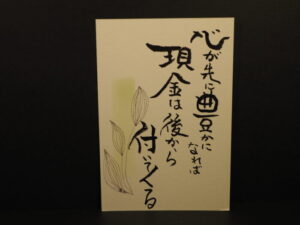 心が先に豊かに
なれば
現金は後から
付いてくる